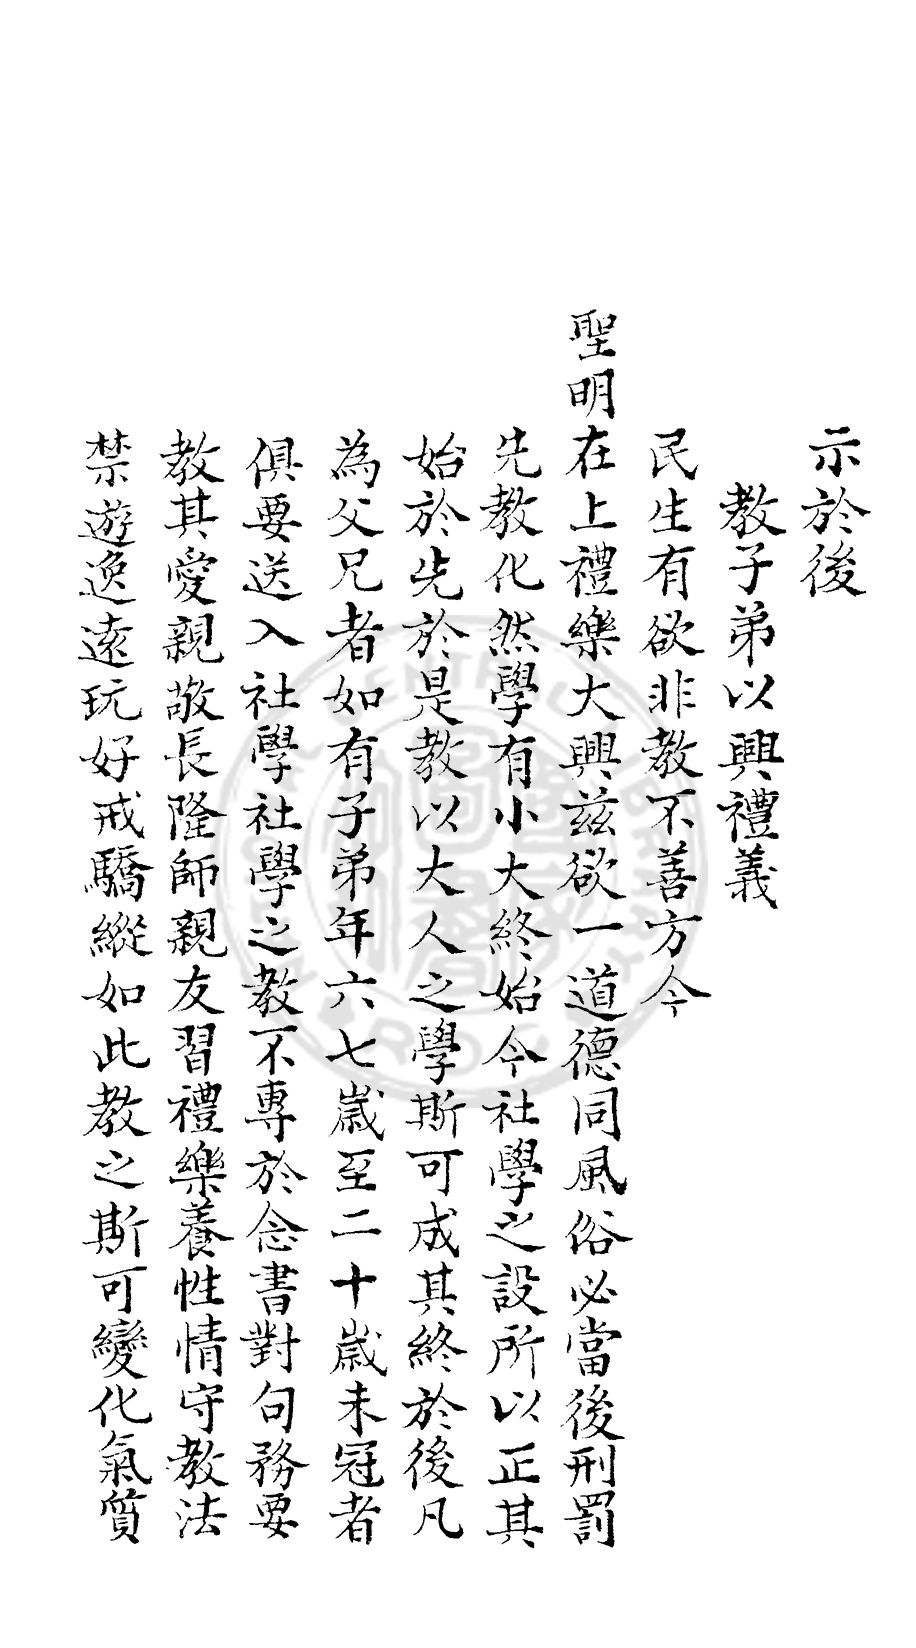 示於後
教子弟以興禮義
民生有欲非教不善方今
聖明在上禮樂大興茲欲一道德同風俗必當後刑罰
先教化然學有小大終始今社學之設所以正其
始於先於是教以大人之學斯可成其終於後凡
為父兄者如有子弟年六七歲至二十歲未冠者
俱要送入社學社學之教不專於念書對句務要
教其愛親敬長隆師親友習禮樂養性情守教法
禁遊逸遠玩好戒驕縱如此教之斯可變化氣質